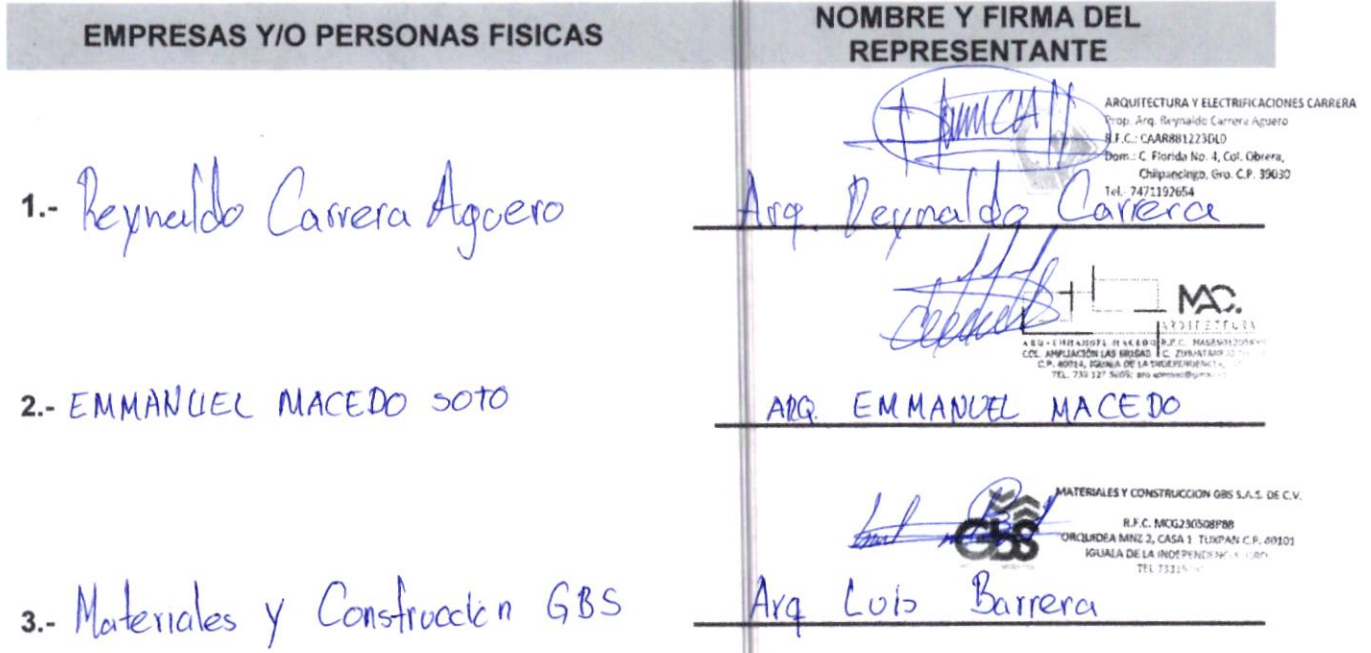 EMPRESAS Y/O PERSONAS FISICAS
NOMBRE Y FIRMA DEL
REPRESENTANTE
ARQUITECTURA Y ELECTRIFICACIONES CARRERA
Prop. Arq. Reynaldo Carrera Aguero
R.F.C.: CAAR881223DL0
Dom.: C. Florida No. 4, Col. Obrera,
Chilpancingo, Gro. C.P. 39030
Tel.- 7471192654
1.- Reynaldo Carrera Aguero
Arq. Reynaldo Carrera
MAC.
ARQUITECTURA
ARQ. EMMANUEL MACEDO R.F.C.
COL. AMPLIACIÓN LAS BRISAS C.
C.P. 40014, IGUALA DE LA INDEPENDENCIA,
TEL. 733 127
2.- EMMANUEL MACEDO SOTO
ARQ. EMMANUEL MACEDO
GBS
MATERIALES Y CONSTRUCCION GBS S.A.S. DE C.V.
R.F.C. MCG230508P88
ORQUIDEA MNZ 2, CASA 1 TUXPAN C.P. 40101
IGUALA DE LA INDEPENDENCIA
TEL
3.- Materiales y Construcción GBS
Arq Luis Barrera